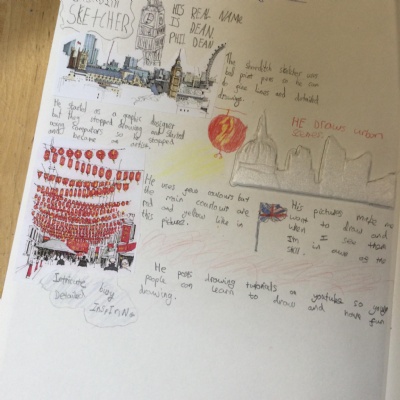 SKETCHER
HIS REAL NAME
IS DEAN.
PHIL DEAN
The shoreditch sketcher uses
ball point pens so he can
do fine lines and detailed
drawings.
He started as a graphic designer
but they stopped drawing and started
using computers so he stopped
and became an artist.
HE DRAWS urban
He uses few colours but
the main colours are
red and yellow like in
this picture.
His pictures make me
want to draw and
when I see them
I'm in awe of his
skill.
He posts drawing tutorials on youtube so
people can learn to draw and have fun
drawing.
Intricate
Detailed
Busy
InspirinG